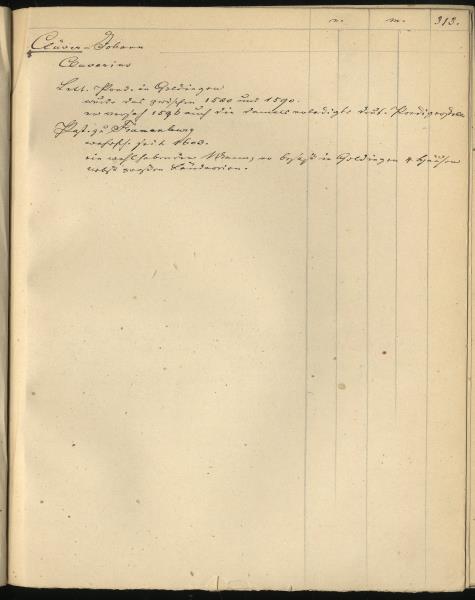 v. m. 313.
Clüver, Johann
Cluverius
Lett. Pred. in Goldingen
wurde das zwischen 1580 und 1590.
er versah 1596 auch die damals erledigte deut. Predigerstelle
Past. zu Frauenburg
seit 1600.
ein wohlhabender Mann, er besass in Goldingen 4 Häuser
nebst grossen Ländereien.